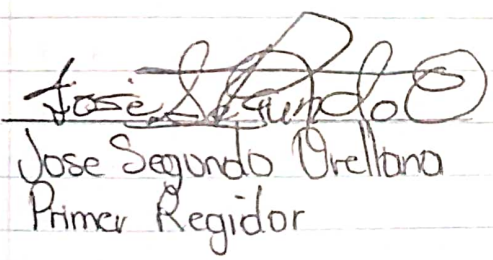 José Segundo O
Jose Segundo Orellana
Primer Regidor